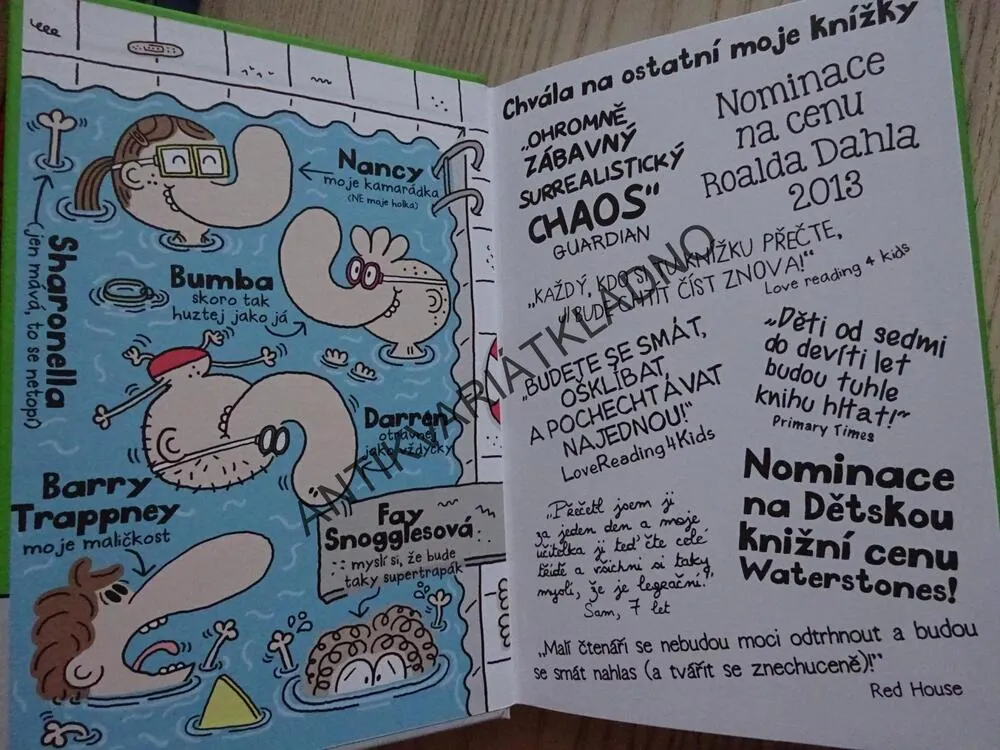 Nancy
moje kamarádka
(NE moje holka)
Sharonella
(jen mává, to se netopí)
Bumba
skoro tak
hustej jako já
Darren
otrávnej
jako vždycky
Barry
Trappney
moje maličkost
Fay
Snogglesová
myslí si, že bude
taky supertrapák
Chvála na ostatní moje knížky
„OHROMNĚ
ZÁBAVNÝ
SURREALISTICKÝ
CHAOS“
GUARDIAN
Nominace
na cenu
Roalda Dahla
2013
„KAŽDÝ, KDO SI TU KNÍŽKU PŘEČTE,
JI BUDE CHTÍT ČÍST ZNOVA!“
Love reading 4 kids
„BUDETE SE SMÁT,
OŠKLÍBAT
A POCHECHTÁVAT
NAJEDNOU!“
LoveReading4Kids
„Děti od sedmi
do devíti let
budou tuhle
knihu hltat!“
Primary Times
„Přečetl jsem ji
za jeden den a moje
učitelka ji teď čte celé
třídě a všichni si taky
myslí, že je legrační.“
Sam, 7 let
Nominace
na Dětskou
knižní cenu
Waterstones!
„Malí čtenáři se nebudou moci odtrhnout a budou
se smát nahlas (a tvářit se znechuceně)!“
Red House
ANTIKVARIATKLADNO